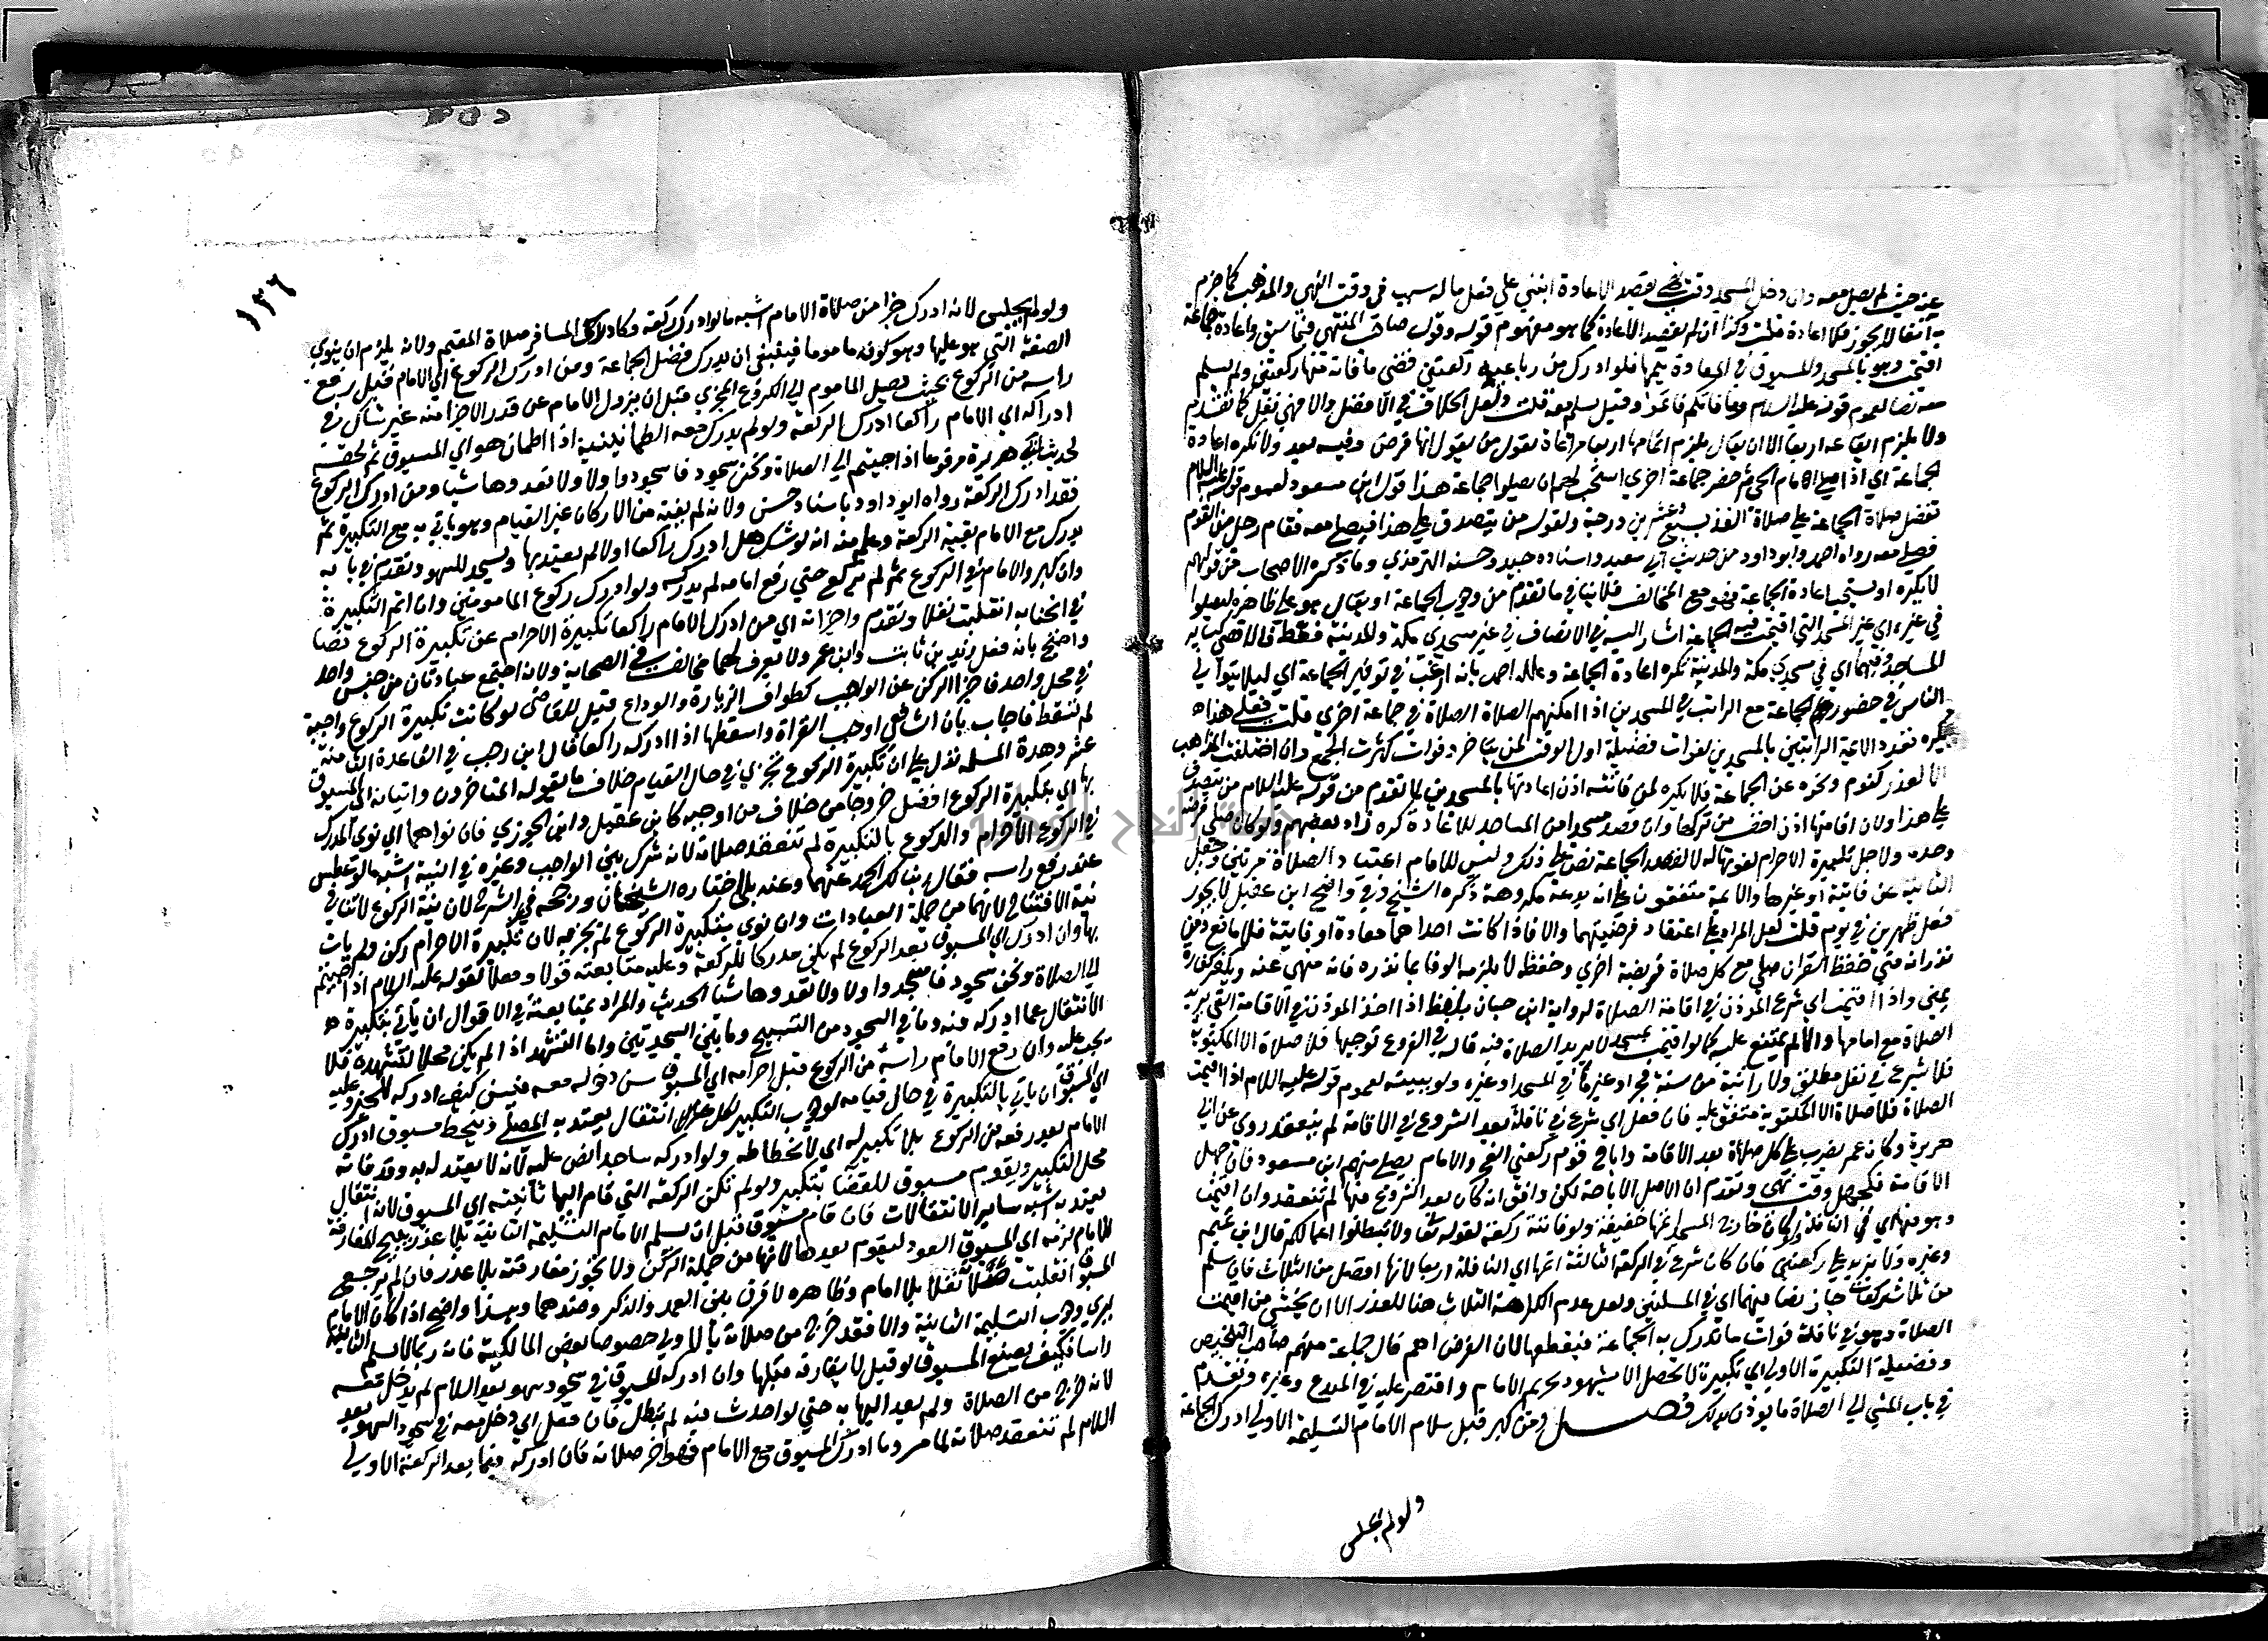 عنه حيث لم يصل معه وان دخل المسجد وقت نهي بقصد الاعادة انبنى علي فعل ما له سبب في وقت النهي والمذهب كما جزم
به آنفا لا يجوز فلا اعادة قلت وكذا ان لم يقصد الاعادة كما هو مفهوم قوله وقول صاحب المنتهي فيما سبق واعادة جماعة
اقيمت وهو بالمسجد والمسبوق في المعادة يتمها فلو ادرك من رباعية ركعتين قضى ما فاته منها ركعتين ولم يسلم
معه نصا لعموم قوله عليه السلام وما فاتكم فاتموا وقيل يسلم معه قلت ولعل الخلاف في الافضل والا فهي نفل كما تقدم
ولا يلزم ايقاعه اربعا الا ان يقال يلزم اتمامها اربعا مراعاة لقول من يقول انها فرض وفيه بعد ولا تكره اعادة
الجماعة اي اذا صلى الامام الحي ثم حضر جماعة اخري استحب لهم ان يصلوا جماعة هذا قول ابن مسعود لعموم قوله عليه السلام
تفضل صلاة الجماعة علي صلاة الفذ بسبع وعشرين درجة ولقوله من يتصدق علي هذا فيصلي معه فقام رجل من القوم
فصلى معه رواه احمد وابو داود من حديث ابي سعيد واسناده جيد وحسنه الترمذي وما ذكره الاصحاب من قولهم
لا يكره او يستحب اعادة الجماعة فهو مع المخالف فلا ينافي ما تقدم من وجوب الجماعة او يقال هو على ظاهره ليصلوا
في غيره اي غير المسجد التي اقيمت فيه الجماعة اشار اليه في الانصاف في غير مسجدي مكة والمدينة فقط
المساجد وفيهما اي في مسجدي مكة والمدينة تكره اعادة الجماعة وعلله احمد بانه ارغب في توفير الجماعة اي ليلا يتوانى
الناس في حضور الجماعة مع الراتب في المسجدين اذا امكنهم الصلاة في جماعة اخري قلت فعلى هذا
يكره تعدد الائمة الراتبين بالمسجدين لفوات فضيلة اول الوقت لمن يتاخر وفوات كثرت الجمع وان اختلفت المذاهب
الا لعذر كنوم ونحوه عن الجماعة فلا يكره لمن فاتته اذن اعادتها بالمسجدين لما تقدم من قوله عليه السلام من يتصدق
علي هذا ولان اقامتها اذن اخف من تركها وان قصد مسجدا من المساجد للاعادة كره زاد بعضهم ولو كان صلى فرضه
وحده ولاجل تكبيرة الاحرام لفوتها له لا لقصد الجماعة نص علي ذلك وليس للامام اعتياد الصلاة مرتين وجعل
الثانية عن فائتة او غيرها والائمة متفقون علي انه بدعة مكروهة ذكره الشيخ وفي واضح ابن عقيل لا يجوز
فعل ظهرين في يوم قلت لعل المراد علي اعتقاد فرضيتهما والا فاذا كانت احداهما معادة او فايتة فلا مانع ومن
نذر انه متي حفظ القران صلى مع كل صلاة فريضة اخري وحفظه لا يلزمه الوفا بما نذره فانه منهي عنه ويكفر كفارة
يمين واذا اقيمت اي شرع الموذن في اقامة الصلاة لرواية ابن حبان بلفظ اذا اخذ الموذن في الاقامة التي يريد
الصلاة مع امامها والا لم يمتنع عليه كما لو اقيمت بمسجد لا يريد الصلاة فيه قاله في الفروع توجيها فلا صلاة الا المكتوبة
فلا شرع في نفل مطلق ولا راتبة من سنة فجر او غيرها في المسجد او غيره ولو ببيته لعموم قوله عليه السلام اذا اقيمت
الصلاة فلا صلاة الا المكتوبة متفق عليه فان فعل اي شرع في نافلة بعد الشروع في الاقامة لم ينعقد روي عن ابي
هريرة وكان عمر يضرب علي كل صلاة بعد الاقامة واباح قوم ركعتي الفجر والامام يصلي منهم ابن مسعود فان جهل
الاقامة فكجهل وقت نهي وتقدم ان الاصل الاباحة لكن وافق انه كان بعد الشروع فيها لم تنعقد وان اقيمت
وهو فيها اي في النافلة ولو كان خارج المسجد اتمها خفيفة ولو فاتته ركعة لقوله تعا ولا تبطلوا اعمالكم قال ابن تميم
وغيره ولا يزيد علي ركعتين فان كان شرع في الركعة الثالثة اتمها اي النافلة اربعا لانها افضل من الثلاث فان سلم
من ثلاث ركعات جاز نصا فيهما اي في المسلتين ولعل عدم الكراهة الثلاث هنا للعذر الا ان يخشى من اقيمت
الصلاة وهو في نافلة فوات ما تدرك به الجماعة فيقطعها لان الفرض اهم قال جماعة منهم صاحب التلخيص
وفضيلة التكبيرة الاولي اي تكبيرة لا تحصل الا بشهود تحريم الامام واقتصر عليه في المبدع وغيره وتقدم
في باب المشي الي الصلاة ما يوذن بذلك فصــل ومن كبر قبل سلام الامام التسليمة الاولي ادرك الجماعة
ولو لم يجلس
١٣٦
ولو لم يجلس لانه ادرك جزا من صلاة الامام اشبه ما لو ادرك ركعة وكادراك المسافر صلاة المقيم ولانه يلزم ان ينوي
الصفة التي هو عليها وهو كونه ماموما فينبغي ان يدرك فضل الجماعة ومن ادرك الركوع اي الامام قبل رفع
راسه من الركوع بحيث يصل الماموم الي الركوع المجزي قبل ان يزول الامام عن قدر الاجزا منه غير شاك في
ادراكه اي الامام راكعا ادرك الركعة ولو لم يدرك معه الطمانينة اذا اطمان هو اي المسبوق ثم لحقه
لحديث ابي هريرة مرفوعا اذا جيتم الي الصلاة ونحن سجود فاسجدوا ولا تعدوها شيا ومن ادرك الركوع
فقد ادرك الركعة رواه ابو داود باسناد حسن ولانه لم يفته من الاركان غير القيام وهو ياتي به مع التكبيرة ثم
يدرك مع الامام بقية الركعة وعلم منه انه لو شك هل ادرك راكعا اولا لم يعتد بها ويسجد للسهو وتقدم في بابه
وان كبر والامام في الركوع ثم لم يركع حتي رفع امامه لم يدركه ولو ادرك ركوع المامومين وان اتم التكبيرة
في انحنايه انقلبت نفلا وتقدم واجزاته اي من ادرك الامام راكعا تكبيرة الاحرام عن تكبيرة الركوع نصا
واحتج بانه فعل زيد بن ثابت وابن عمر ولا يعرف لهما مخالف في الصحابة ولانه اجتمع عبادتان من جنس واحد
في محل واحد فاجزا الركن عن الواجب كطواف الزيارة والوداع قيل للقاضي لو كانت تكبيرة الركوع واجبة
لم تسقط فاجاب بان الشافعي اوجب القراة واسقطها اذا ادركه راكعا قال ابن رجب في القاعدة الثامنة
عشر وهذه المسلة تدل علي ان تكبيرة الركوع تجزي في حال القيام خلاف ما يقوله المتاخرون واتيانه اي المسبوق
بها اي بتكبيرة الركوع افضل خروجا من خلاف من اوجبه كابن عقيل وابن الجوزي فان نواهما اي نوي المدرك
في الركوع الاحرام والركوع بالتكبيرة لم تنعقد صلاته لانه شرك بين الواجب وغيره في النية اشبه ما لو عطس
عند رفع راسه فقال ربنا لك الحمد عنهما وعنه بلى اختاره الشيخان ورجحه في الشرح لان نية الركوع لا تنافي
نية الافتتاح لانهما من جملة العبادات وان نوى بتكبيرة الركوع لم يجزه لان تكبيرة الاحرام ركن ولم يات
بها وان ادرك اي المسبوق بعد الركوع لم يكن مدركا للركعة وعليه متابعته قولا وفعلا لقوله عليه السلام اذا جيتم
الي الصلاة ونحن سجود فاسجدوا ولا تعدوها شيا الحديث والمراد بمتابعته في الاقوال ان ياتي بتكبيرة
الانتقال عما ادركه فيه وما في السجود من التسبيح وما بين السجدتين واما التشهد اذا لم يكن محلا لتشهده فلا
يجب عليه وان رفع الامام راسه من الركوع قبل احرامه اي المسبوق سن دخوله معه فيسن كيف ادركه للخبر وعليه
اي المسبوق ان ياتي بالتكبيرة في حال قيامه لوجوب التكبير لكل انتقال يعتد به المصلي وينحط مسبوق ادرك
الامام بعد رفعه من الركوع بلا تكبير له اي لانحطاطه ولو ادركه ساجدا نص عليه لانه لا يعتد له به وقد فاته
محل التكبير ويقوم مسبوق للقضا بتكبير ولو لم تكن الركعة التي قام اليها ثانيته اي المسبوق لانه انتقال
يعتد به اشبه ساير الانتقالات فان قام مسبوق قبل ان يسلم الامام التسليمة الثانية بلا عذر يبيح المفارقة
للامام لزمه اي المسبوق العود ليقوم بعدها لانها من جملة الركن ولا تجوز مفارقته بلا عذر فان لم يرجع
المسبوق انقلبت نفلا بلا امام وظاهره لا فرق بين العمد والذكر وضدهما وهذا واضح اذا كان الامام
يري وجوب التسليمة الثانية والا فقد خرج من صلاته بالاولي خصوصا بعض المالكية فانه ربما لا يسلم الثانية
راسا فكيف يصنع المسبوق لو قيل لا يفارقه قبلها وان ادركه المسبوق في سجود سهو بعد السلام لم يدخل معه
لانه خرج من الصلاة ولم يعد اليها به حتي لو احدث فيه لم تبطل فان فعل اي دخل معه في سجود السهو بعد
السلام لم تنعقد صلاته لما مر وما ادرك المسبوق مع الامام فهو اخر صلاته فان ادركه فيما بعد الركعة الاولي